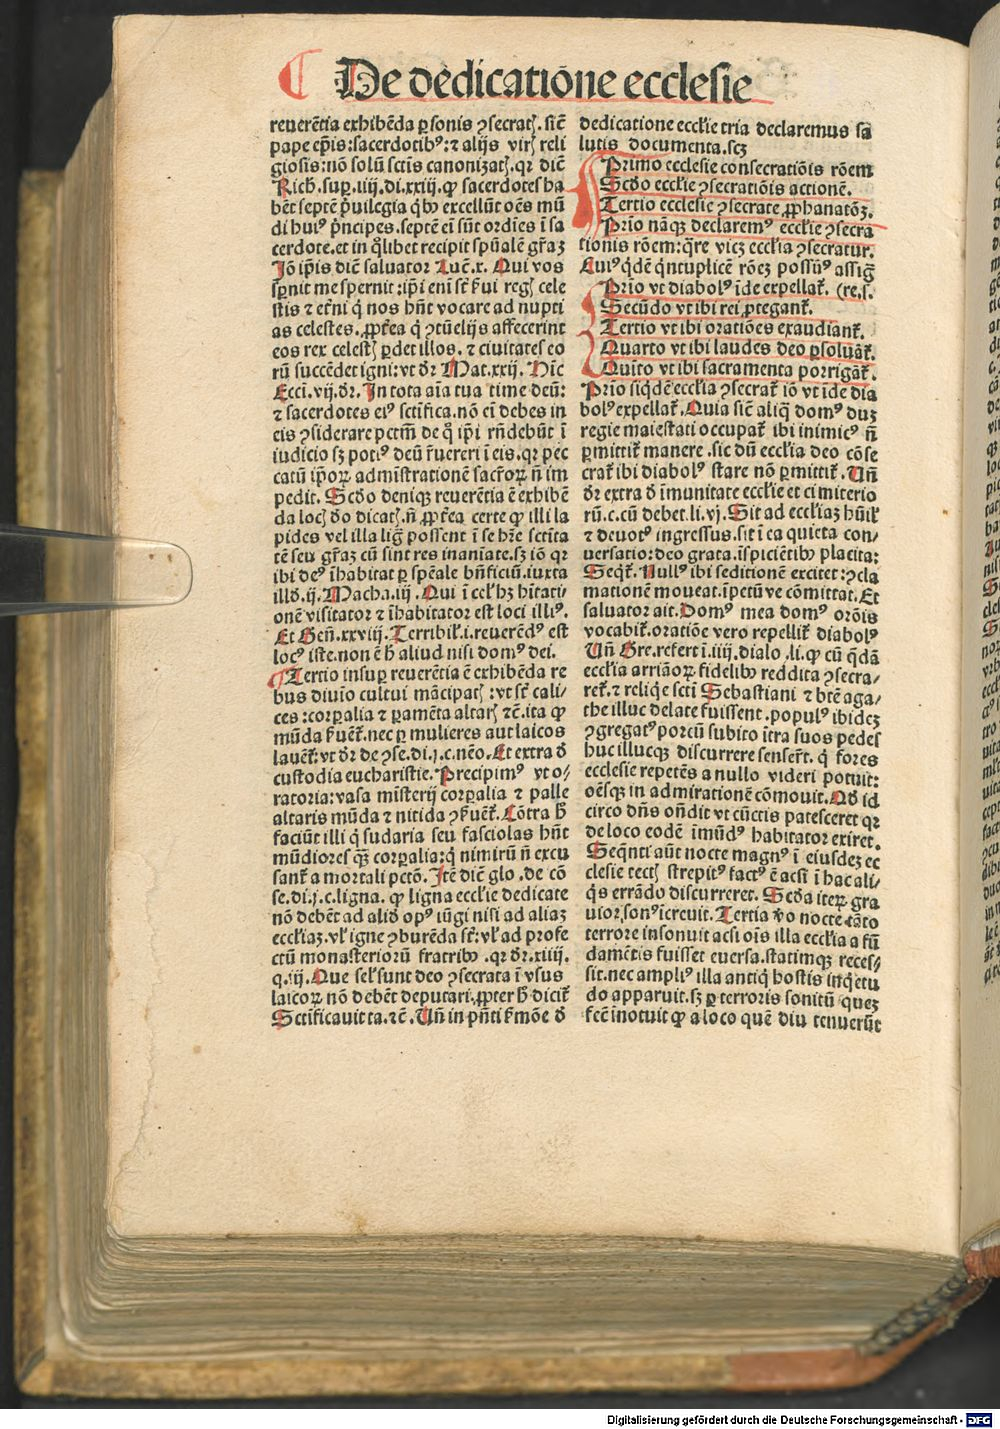 De dedicatiōne ecclesie
reuerētia exhibēda ꝑsonis ꝯsecratꝭ. sic̄
pape ep̄is: sacerdotibꝰ: ⁊ alijs virꝭ reli
giosis: nō solū sctīs canonizatꝭ. qꝛ dic̄
Rich. suꝑ .iiij. di. xxiij. ꝙ sacerdotes ha
bēt septē p̄uilegia q̄bꝰ excellūt oēs mū
di huiꝰ p̄ncipes. septē ei̅ sūt ordīes ī sa
cerdote. et in q̄libet recipit spūalē gr̄aꝫ
Jō ip̄is dic̄ saluator Luc̄. x. Qui vos
sp̄nit me spernit: ip̄i eni̅ st̄ ẜui regꝭ cele
stis ⁊ et̄ni qͥ nos hn̄t vocare ad nupti
as celestes. ꝓpt̄ea qͥ ꝯtūelijs affecerint
eos rex celestꝭ ꝑdet illos. ⁊ ciuitates eo
rū succēdet igni: vt dr̄ Mat. xxij. Hic̄
Ecci. vij. dr̄. In tota aīa tua time deū:
⁊ sacerdotes eiꝰ sctīfica. nō ei̅ debes in
eis ꝯsiderare pctm̄ de qͦ ip̄i rn̄debūt ī
iudicio sꝫ potiꝰ deū reuereri ī eis. qꝛ pec
catū ip̄oꝝ admīstrationē sacroꝝ n̄ im
pedit. Scd̄o deniqꝫ reuerētia ē exhibē
da locꝭ dō dicatꝭ. n̄ ꝓpt̄ea certe ꝙ illi la
pides vel illa liḡ possent ī se hr̄e sctīta
tē seu gr̄aꝫ cū sint res inaniate. sꝫ iō qꝛ
ibi deꝰ īhabitat ꝑ spēale bn̄ficiū. iuxta
illd̄. ij. Macha. iij. Qui ī celꝭ hꝫ hītati
onē visitator ⁊ īhabitator est loci illiꝰ.
Et Gen̄. xxviij. Terribil̄. i. reuerēdꝰ est
locꝰ iste. non ē h̄ aliud nisi domꝰ dei.
Tertio insuꝑ reuerētia ē exhibēda re
bus diuīo cultui mācipatꝭ: vt st̄ cali⸗
ces: corꝑalia ⁊ ꝑamēta altarꝭ ⁊c̄. ita ꝙ
mūda ẜuent̄. nec ꝑ mulieres aut laicos
lauent̄: vt dr̄ de ꝯse. di. j. c. nēo. Et extra d̄
custodia eucharistie. Precipimꝰ vt o⸗
ratoria: vasa mīsterij corꝑalia ⁊ palle
altaris mūda ⁊ nitida ꝯẜuent̄. Cōtra h̄
faciūt illi qͥ sudaria seu fasciolas hn̄t
mūdiores qͣꝫ corꝑalia: qͥ nimirū n̄ excu
sant̄ a mortali pctō. Itē dic̄ glo. de cō
se. di. j. c. ligna. ꝙ ligna eccl̄ie dedicate
nō debēt ad aliō opꝰ iūgi nisi ad aliaꝫ
eccl̄iaꝫ. vl̄ igne ꝯburēda st̄: vl̄ ad profe
ctū monasteriorū fratribꝰ. qꝛ dr̄. xiiij.
q. iij. Que sel̄ sunt deo ꝯsecrata ī vsus
laicoꝝ nō debēt deputari. ꝓpter h̄ dicit̄
Sctīficauit ta. ⁊c̄. Vn̄ in pn̄ti ẜmōe d̄
dedicatione eccl̄ie tria declaremus sa
lutis documenta. scꝫ
Primo ecclesie consecratiōis rōem
Scd̄o eccl̄ie ꝯsecratiōis actionē.
Tertio ecclesie ꝯsecrate ꝓphanatōꝫ.
Prīo nāqꝫ declaremꝰ eccl̄ie ꝯsecra
tionis rōem: qͣre vicꝫ eccl̄ia ꝯsecratur.
Cuiꝰ qͥdē qͥntuplicē rōeꝫ possūꝰ assiḡ
Prīo vt diabolꝰ īde expellat̄. (re. s.
Secūdo vt ibi rei ꝓtegant̄.
Tertio vt ibi oratiōes exaudiant̄.
Quarto vt ibi laudes deo ꝑsoluāt̄.
Quīto vt ibi sacramenta porrigāt̄.
Prīo siqͥdē eccl̄ia ꝯsecrat̄ iō vt īde dia
bolꝰ expellat̄. Quia sic̄ aliqͣ domꝰ duꝫ
regie maiestati occupat̄ ibi inimicꝰ n̄
ꝑmittit̄ manere. sic dū eccl̄ia deo cōse
crat̄ ibi diabolꝰ stare nō ꝑmittit̄. Vn̄
dr̄ extra d̄ īmunitate eccl̄ie et cimiterio
rū. c. cū debet. li. vj. Sit ad eccl̄iaꝫ hūil̄
⁊ deuotꝰ ingressus. sit ī ea quieta con⸗
uersatio: deo grata. īspiciētibꝰ placita:
Seqt̄. Nullꝰ ibi seditionē excitet: ꝯcla
mationē moueat. īpetū ve cōmittat. Et
saluator ait. Domꝰ mea domꝰ orōis
vocabit̄. oratiōe vero repellit̄ diabolꝰ
Vn̄ Gre. refert ī. iiij. dialo. li. ꝙ cū qͥdā
eccl̄ia arriāoꝝ fidelibꝰ reddita ꝯsecra⸗
ret̄. ⁊ reliqͥe scti̅ Sebastiani ⁊ btē aga⸗
the illuc delate fuissent. populꝰ ibideꝫ
ꝯgregatꝰ porcū subito ītra suos pedes
huc illucqꝫ discurrere senser̄t. qͥ fores
ecclesie repetēs a nullo videri potuit:
oēsqꝫ in admirationē cōmouit. Qd̄ id
circo dn̄s on̄dit vt cūctis patesceret qꝛ
de loco eodē īmūdꝰ habitator exiret.
Seqn̄ti aūt nocte magnꝰ ī eiusdeꝫ ec
clesie tectꝭ strepitꝰ factꝰ ē acsi ī hac ali⸗
qͥs errādo discurreret. Scd̄a iteꝝ gra
uior. sonꝰ īcreuit. Tertia ꝟo nocte tāto
terrore insonuit acsi oīs illa eccl̄ia a fū
damētis fuisset euersa. statimqꝫ reces⸗
sit. nec ampliꝰ illa antiqͥ hostis inqͥetu
do apparuit. sꝫ ꝑ terroris sonitū quez
fec̄ inotuit ꝙ a loco quē diu tenuerūt
Digitalisierung gefördert durch die Deutsche Forschungsgemeinschaft - DFG